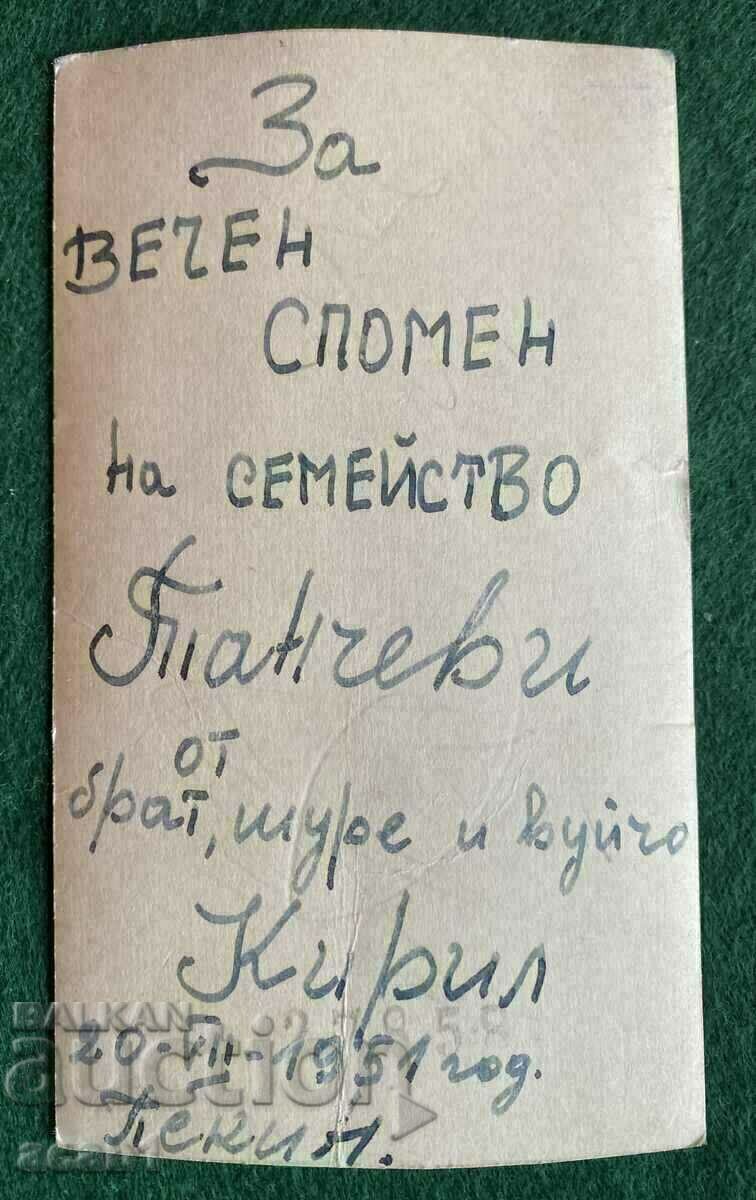 За
ВЕЧЕН
СПОМЕН
на СЕМЕЙСТВО
Танчеви
от
брат, шуре и вуйчо
Кирил
20-VII-1951 год.
Пекин.
BALKAN
auction